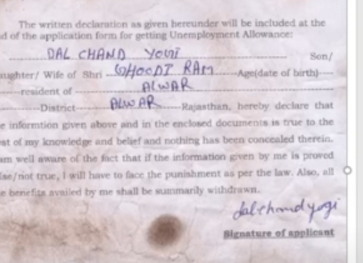 The written declaration as given hereunder will be included at the
d of the application form for getting Unemployment Allowance:
DAL CHAND YOGI Son/
aughter/ Wife of Shri GHOODI RAM Age(date of birth)
resident of ALWAR
District ALWAR Rajasthan, hereby declare that
e informtion given above and in the enclosed documents is true to the
st of my knowledge and belief and nothing has been concealed therein.
am well aware of the fact that if the information given by me is proved
lse/not true, I will have to face the punishment as per the law. Also, all
e benefits availed by me shall be summarily withdrawn.
dalchandyogi
Signature of applicant